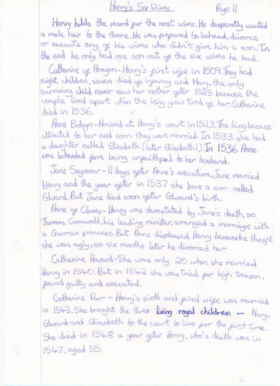 Henry's Six Wives Page 11
Henry holds the record for the most wives. He desperately wanted
a male heir to the throne. He was prepared to behead, divorce
or execute any of his wives who didn't give him a son. In
the end he only had one son out of the six wives he had.
Catherine of Aragon - Henry's first wife in 1509. They had
eight children, seven died as young and Mary, the only
surviving child never saw her mother after 1525 because the
couple lived apart. After the
died in 1536.
Anne Boleyn - Arrived at Henry's court in 1523. The king became
attracted to her and soon they was married. In 1533 she had
a daughter called Elizabeth (later Elizabeth I). In 1536 Anne
was beheaded for being unfaithful to her husband.
Jane Seymour - 11 days after Anne's execution, Jane married
Henry and the year after in 1537 she bore a son called
Edward. But Jane died soon after Edward's birth.
Anne of Cleves - Henry was devastated by Jane's death, so
Thomas Cromwell, his leading minister, arranged a marriage with
a German princess. But Anne disappointed Henry because he thought
she was ugly, so six months later he divorced her.
Catherine Howard - She was only 20 when she married
Henry in 1540. But in 1542 she was tried for high treason,
found guilty and executed.
Catherine Parr - Henry's sixth and final wife was married
in 1543. She brought the three living royal children - Mary,
Edward and Elizabeth to the court to live for the first time.
She died in 1548 a year after Henry, who's death was in
1547, aged 55.